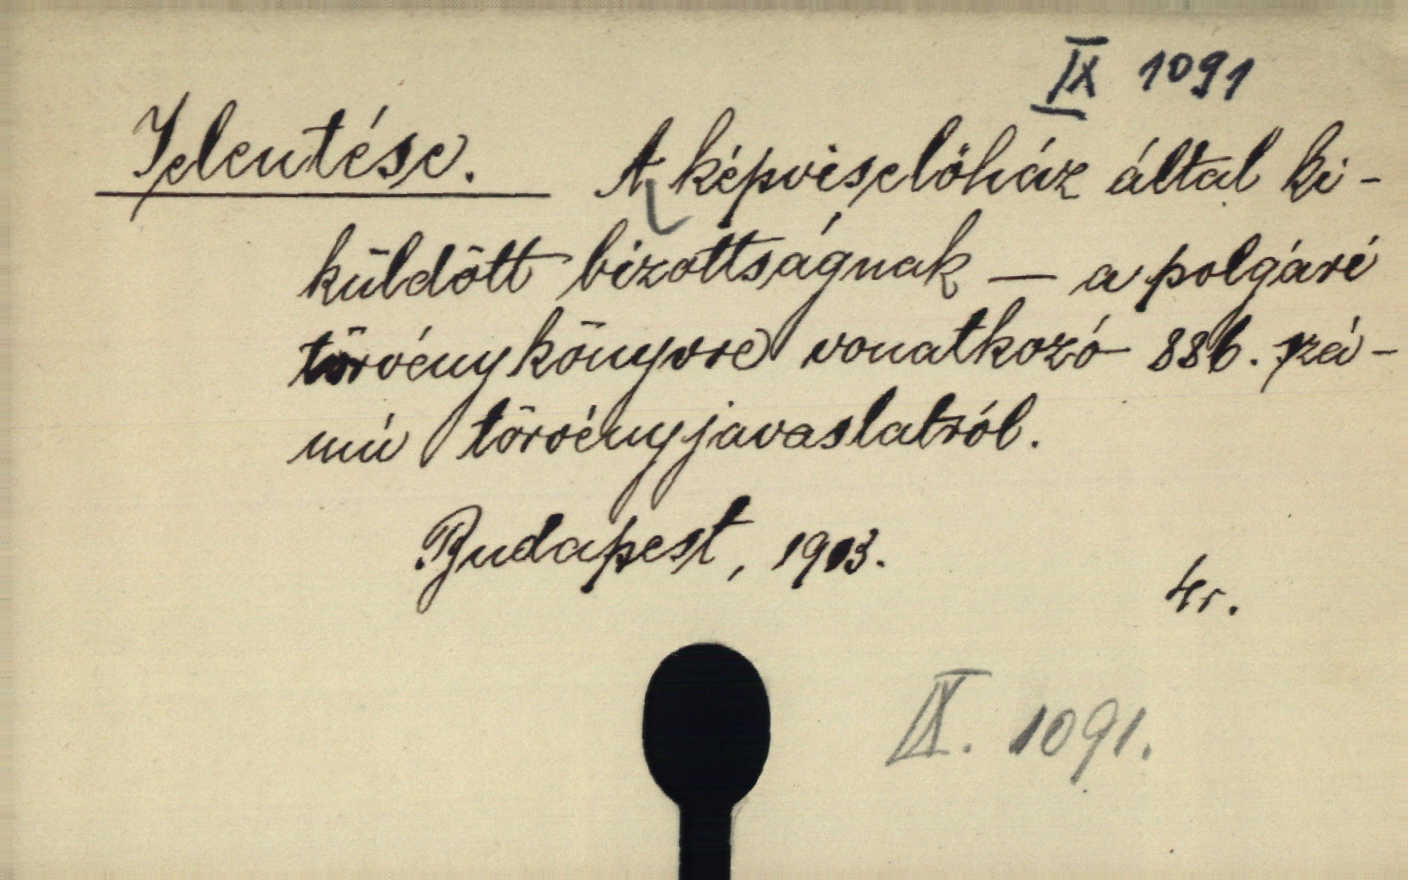 IX 1091
Jelentése. A képviselőház által ki-
küldött bizottságnak — a polgári
törvénykönyvre vonatkozó 886. szá-
mú törvényjavaslatról.
Budapest, 1913.
4r.
IX. 1091.